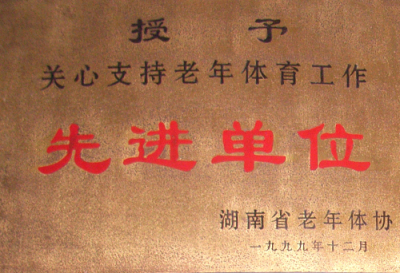 授予
关心支持老年体育工作
先进单位
湖南省老年体协
一九九九年十二月